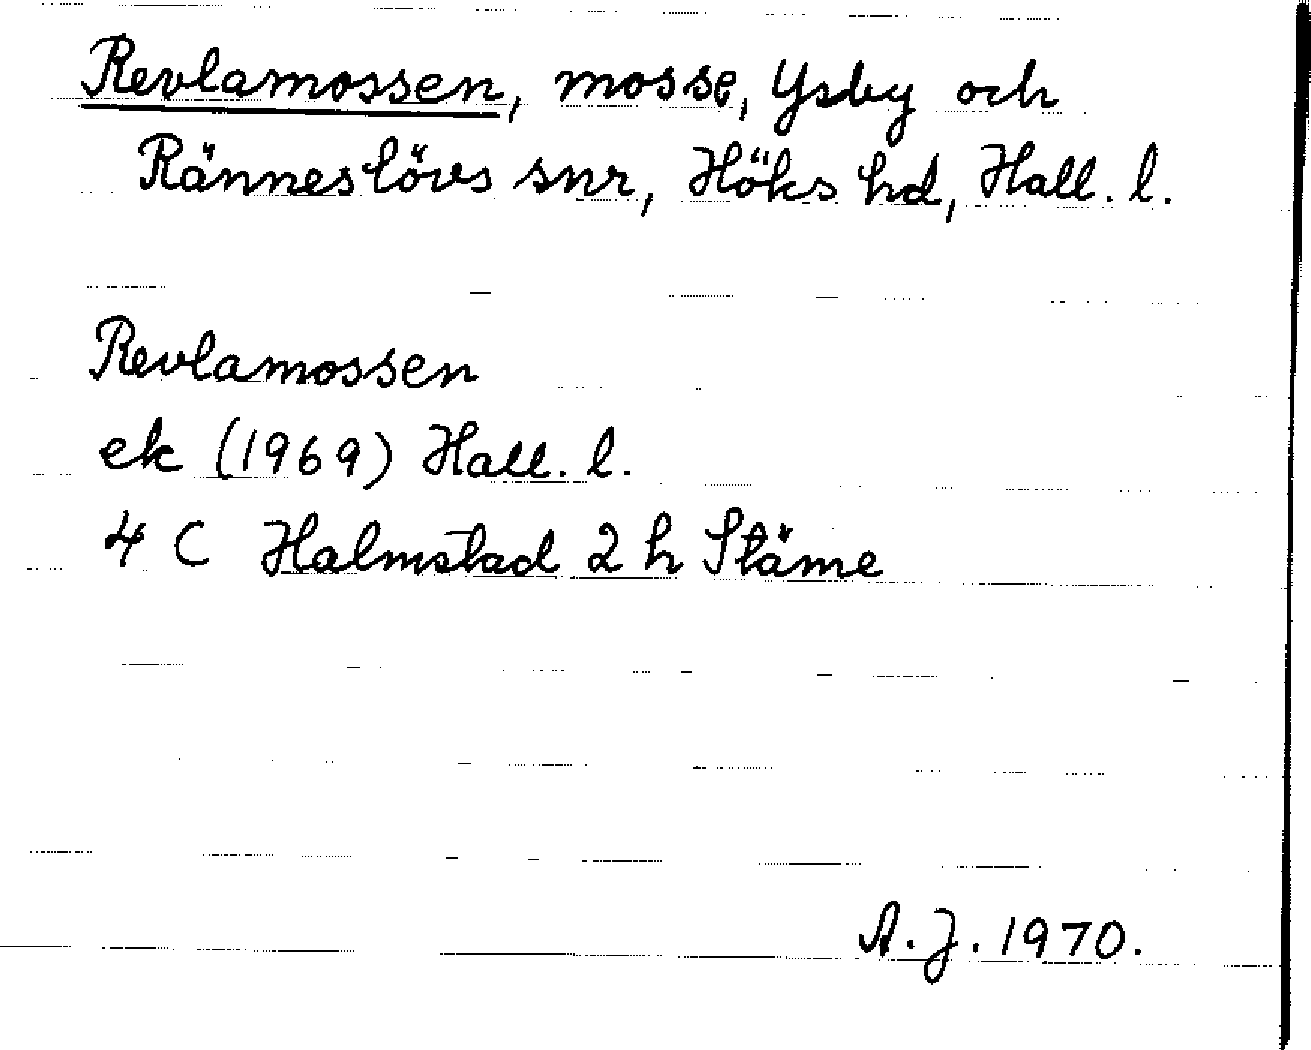 Revlamossen, mosse, Ysby och
Ränneslövs snr, Höks hd, Hall. l.
Revlamossen
ek (1969) Hall. l.
4 C Halmstad 2 h Stäme
A. J. 1970.